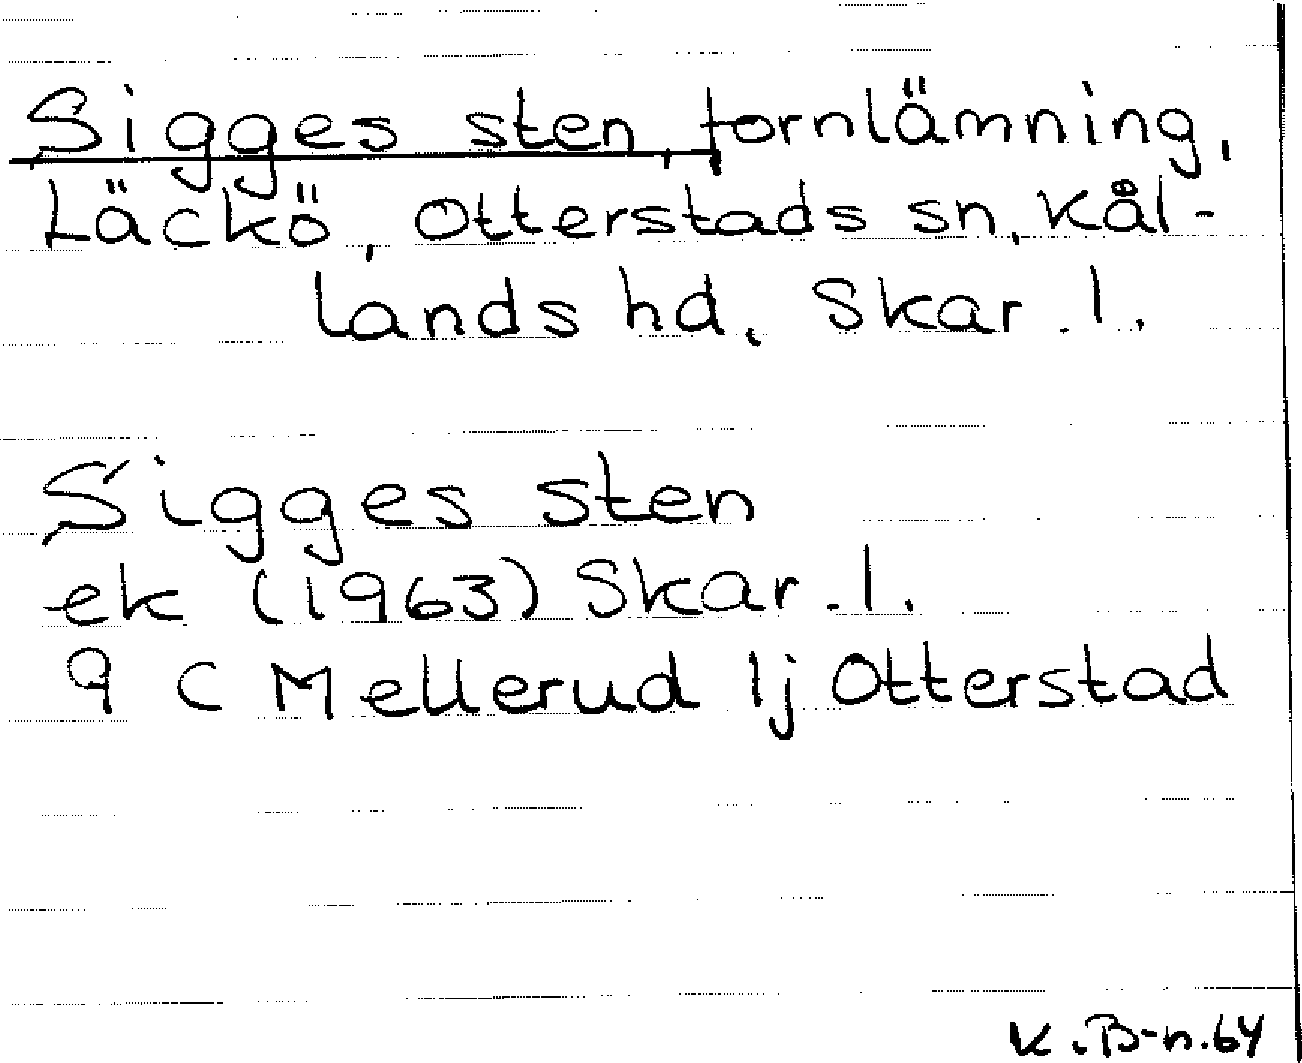 Sigges sten, fornlämning,
Läckö, Otterstads sn, Kål-
lands hd, Skar. l.
Sigges sten
ek (1963) Skar. l.
9 C Mellerud 1j Otterstad
K. B-n. 64